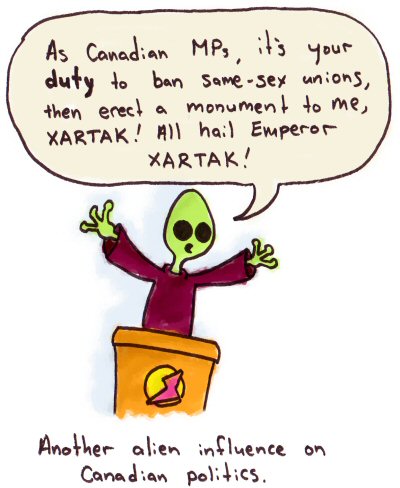 As Canadian MPs, it's your
duty to ban same-sex unions,
then erect a monument to me,
XARTAK! All hail Emperor
XARTAK!
Another alien influence on
Canadian politics.